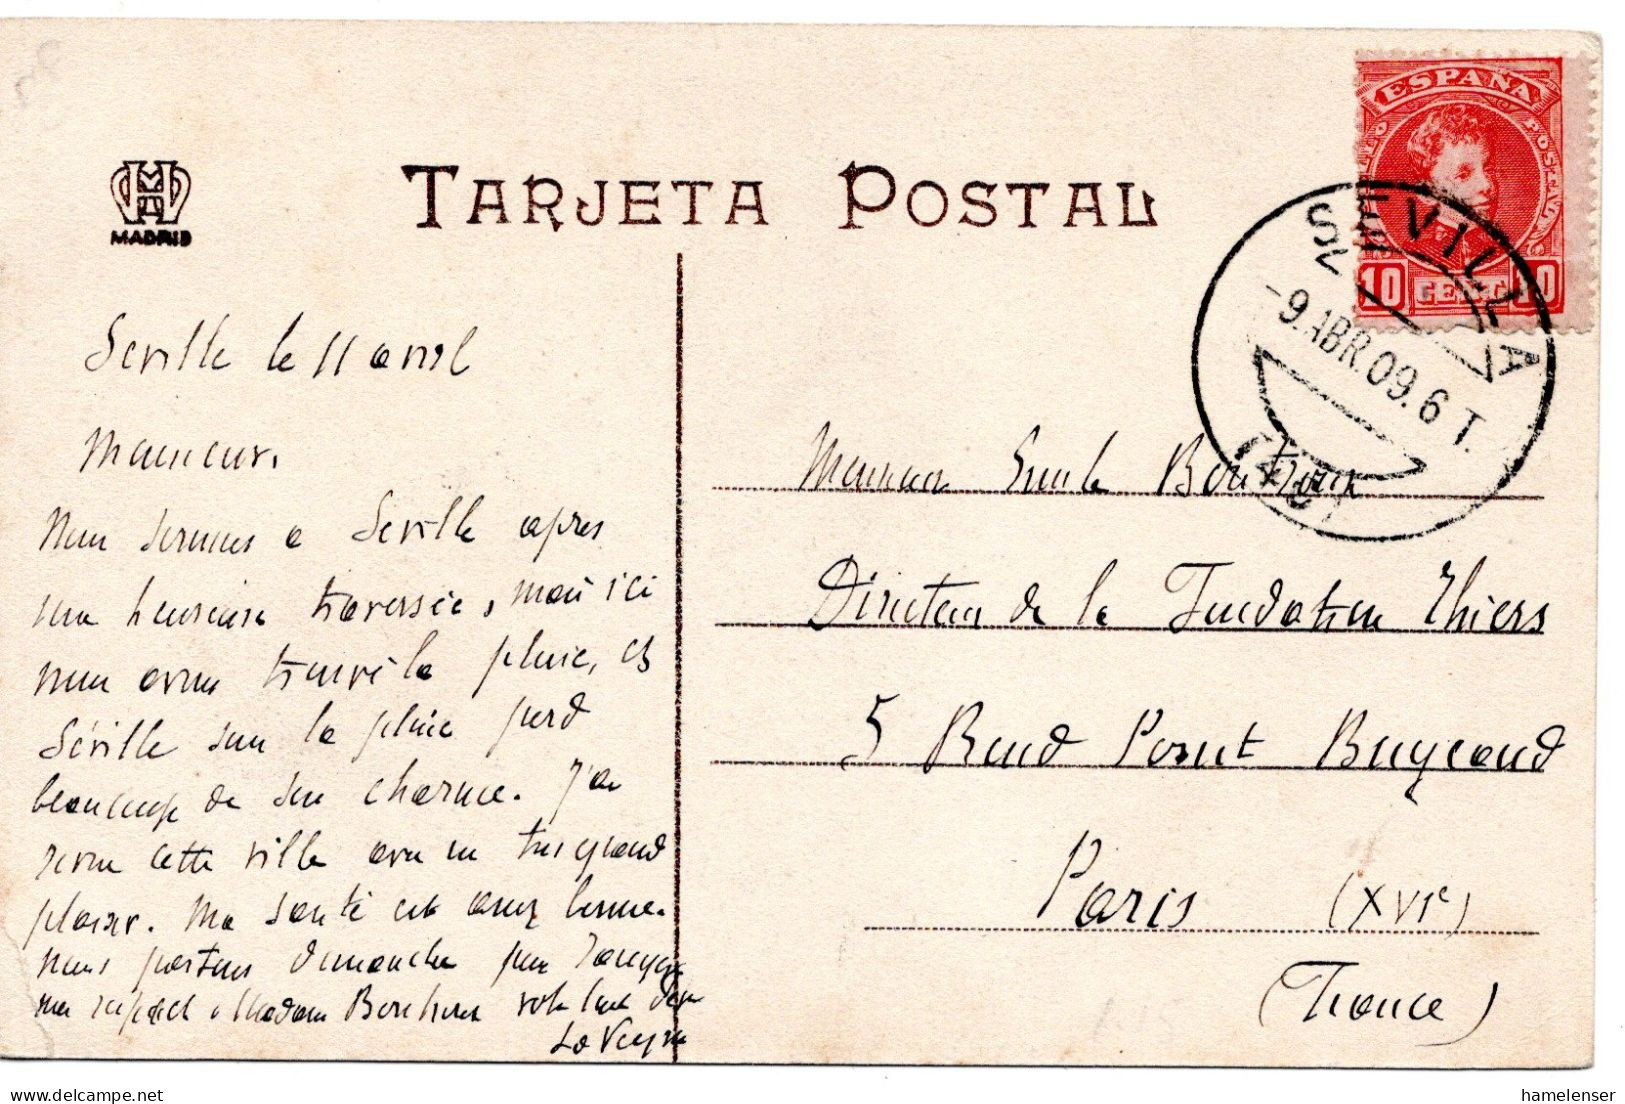 TARJETA POSTAL
MADRID
ESPAÑA
10 CENT 10
SEVILLA
-9.ABR.09.6 T.
Seville le 11 avril
Monsieur.
Nous sommes a Seville apres
une heureuse traversée, mais ici
nous avons trouvé la pluie, et
Séville sous la pluie perd
beaucoup de son charme. J'ai
revu cette ville avec un tres grand
plaisir. Ma santé est assez bonne.
nous partons dimanche pour
mes respect a Madame Boutroux votre tout
Monsieur Emile Boutroux
Directeur de la Fondation Thiers
5 Rond Point Bugeaud
Paris (XVIe)
(France)
hamelenser
delcampe.net